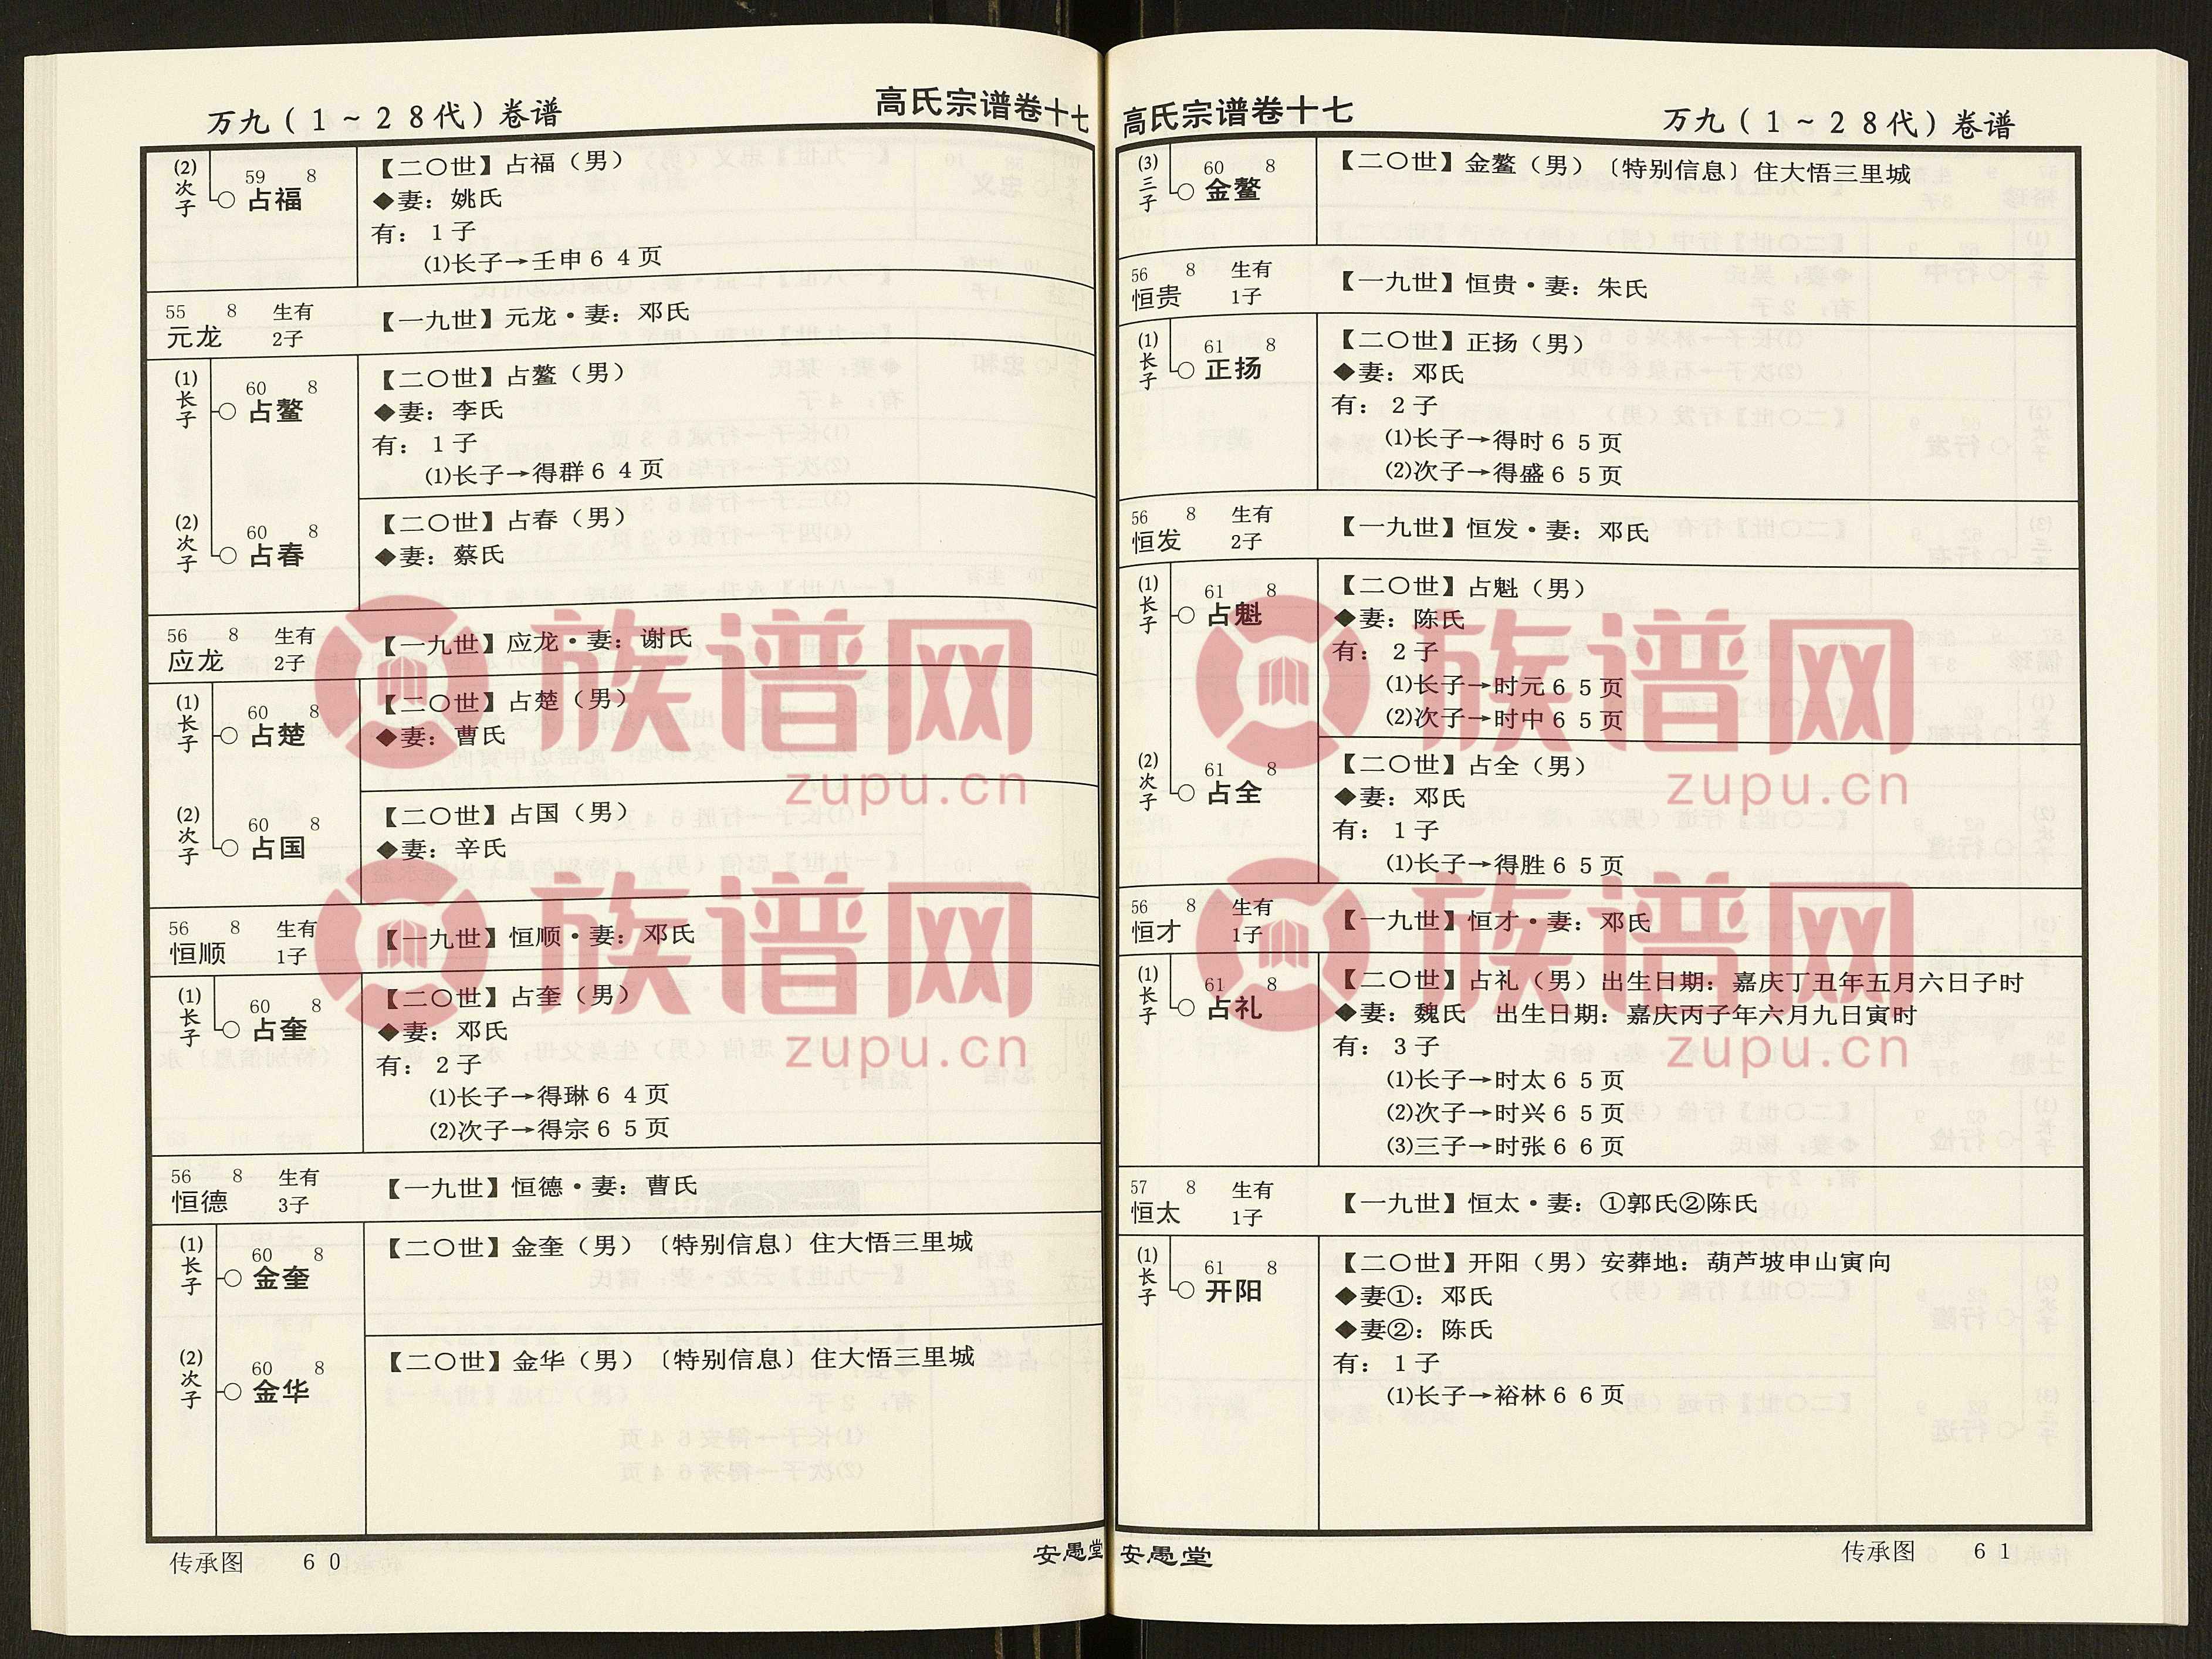 万九(1～28代)卷谱
高氏宗谱卷十七
(2)次子
59 8
占福
【二〇世】占福（男）
◆妻：姚氏
有：1子
(1)长子→壬申64页
55 8 生有
元龙 2子
【一九世】元龙·妻：邓氏
(1)长子
60 8
占鳌
【二〇世】占鳌（男）
◆妻：李氏
有：1子
(1)长子→得群64页
(2)次子
60 8
占春
【二〇世】占春（男）
◆妻：蔡氏
56 8 生有
应龙 2子
【一九世】应龙·妻：谢氏
(1)长子
60 8
占楚
【二〇世】占楚（男）
◆妻：曹氏
(2)次子
60 8
占国
【二〇世】占国（男）
◆妻：辛氏
56 8 生有
恒顺 1子
【一九世】恒顺·妻：邓氏
(1)长子
60 8
占奎
【二〇世】占奎（男）
◆妻：邓氏
有：2子
(1)长子→得琳64页
(2)次子→得宗65页
56 8 生有
恒德 3子
【一九世】恒德·妻：曹氏
(1)长子
60 8
金奎
【二〇世】金奎（男）〔特别信息〕住大悟三里城
(2)次子
60 8
金华
【二〇世】金华（男）〔特别信息〕住大悟三里城
传承图 60
安愚堂
高氏宗谱卷十七
万九(1～28代)卷谱
(3)三子
60 8
金鳌
【二〇世】金鳌（男）〔特别信息〕住大悟三里城
56 8 生有
恒贵 1子
【一九世】恒贵·妻：朱氏
(1)长子
61 8
正扬
【二〇世】正扬（男）
◆妻：邓氏
有：2子
(1)长子→得时65页
(2)次子→得盛65页
56 8 生有
恒发 2子
【一九世】恒发·妻：邓氏
(1)长子
61 8
占魁
【二〇世】占魁（男）
◆妻：陈氏
有：2子
(1)长子→时元65页
(2)次子→时中65页
(2)次子
61 8
占全
【二〇世】占全（男）
◆妻：邓氏
有：1子
(1)长子→得胜65页
56 8 生有
恒才 1子
【一九世】恒才·妻：邓氏
(1)长子
61 8
占礼
【二〇世】占礼（男）出生日期：嘉庆丁丑年五月六日子时
◆妻：魏氏 出生日期：嘉庆丙子年六月九日寅时
有：3子
(1)长子→时太65页
(2)次子→时兴65页
(3)三子→时张66页
57 8 生有
恒太 1子
【一九世】恒太·妻：①郭氏②陈氏
(1)长子
61 8
开阳
【二〇世】开阳（男）安葬地：葫芦坡申山寅向
◆妻①：邓氏
◆妻②：陈氏
有：1子
(1)长子→裕林66页
安愚堂
传承图 61
族谱网
zupu.cn
族谱网
zupu.cn
族谱网
zupu.cn
族谱网
zupu.cn